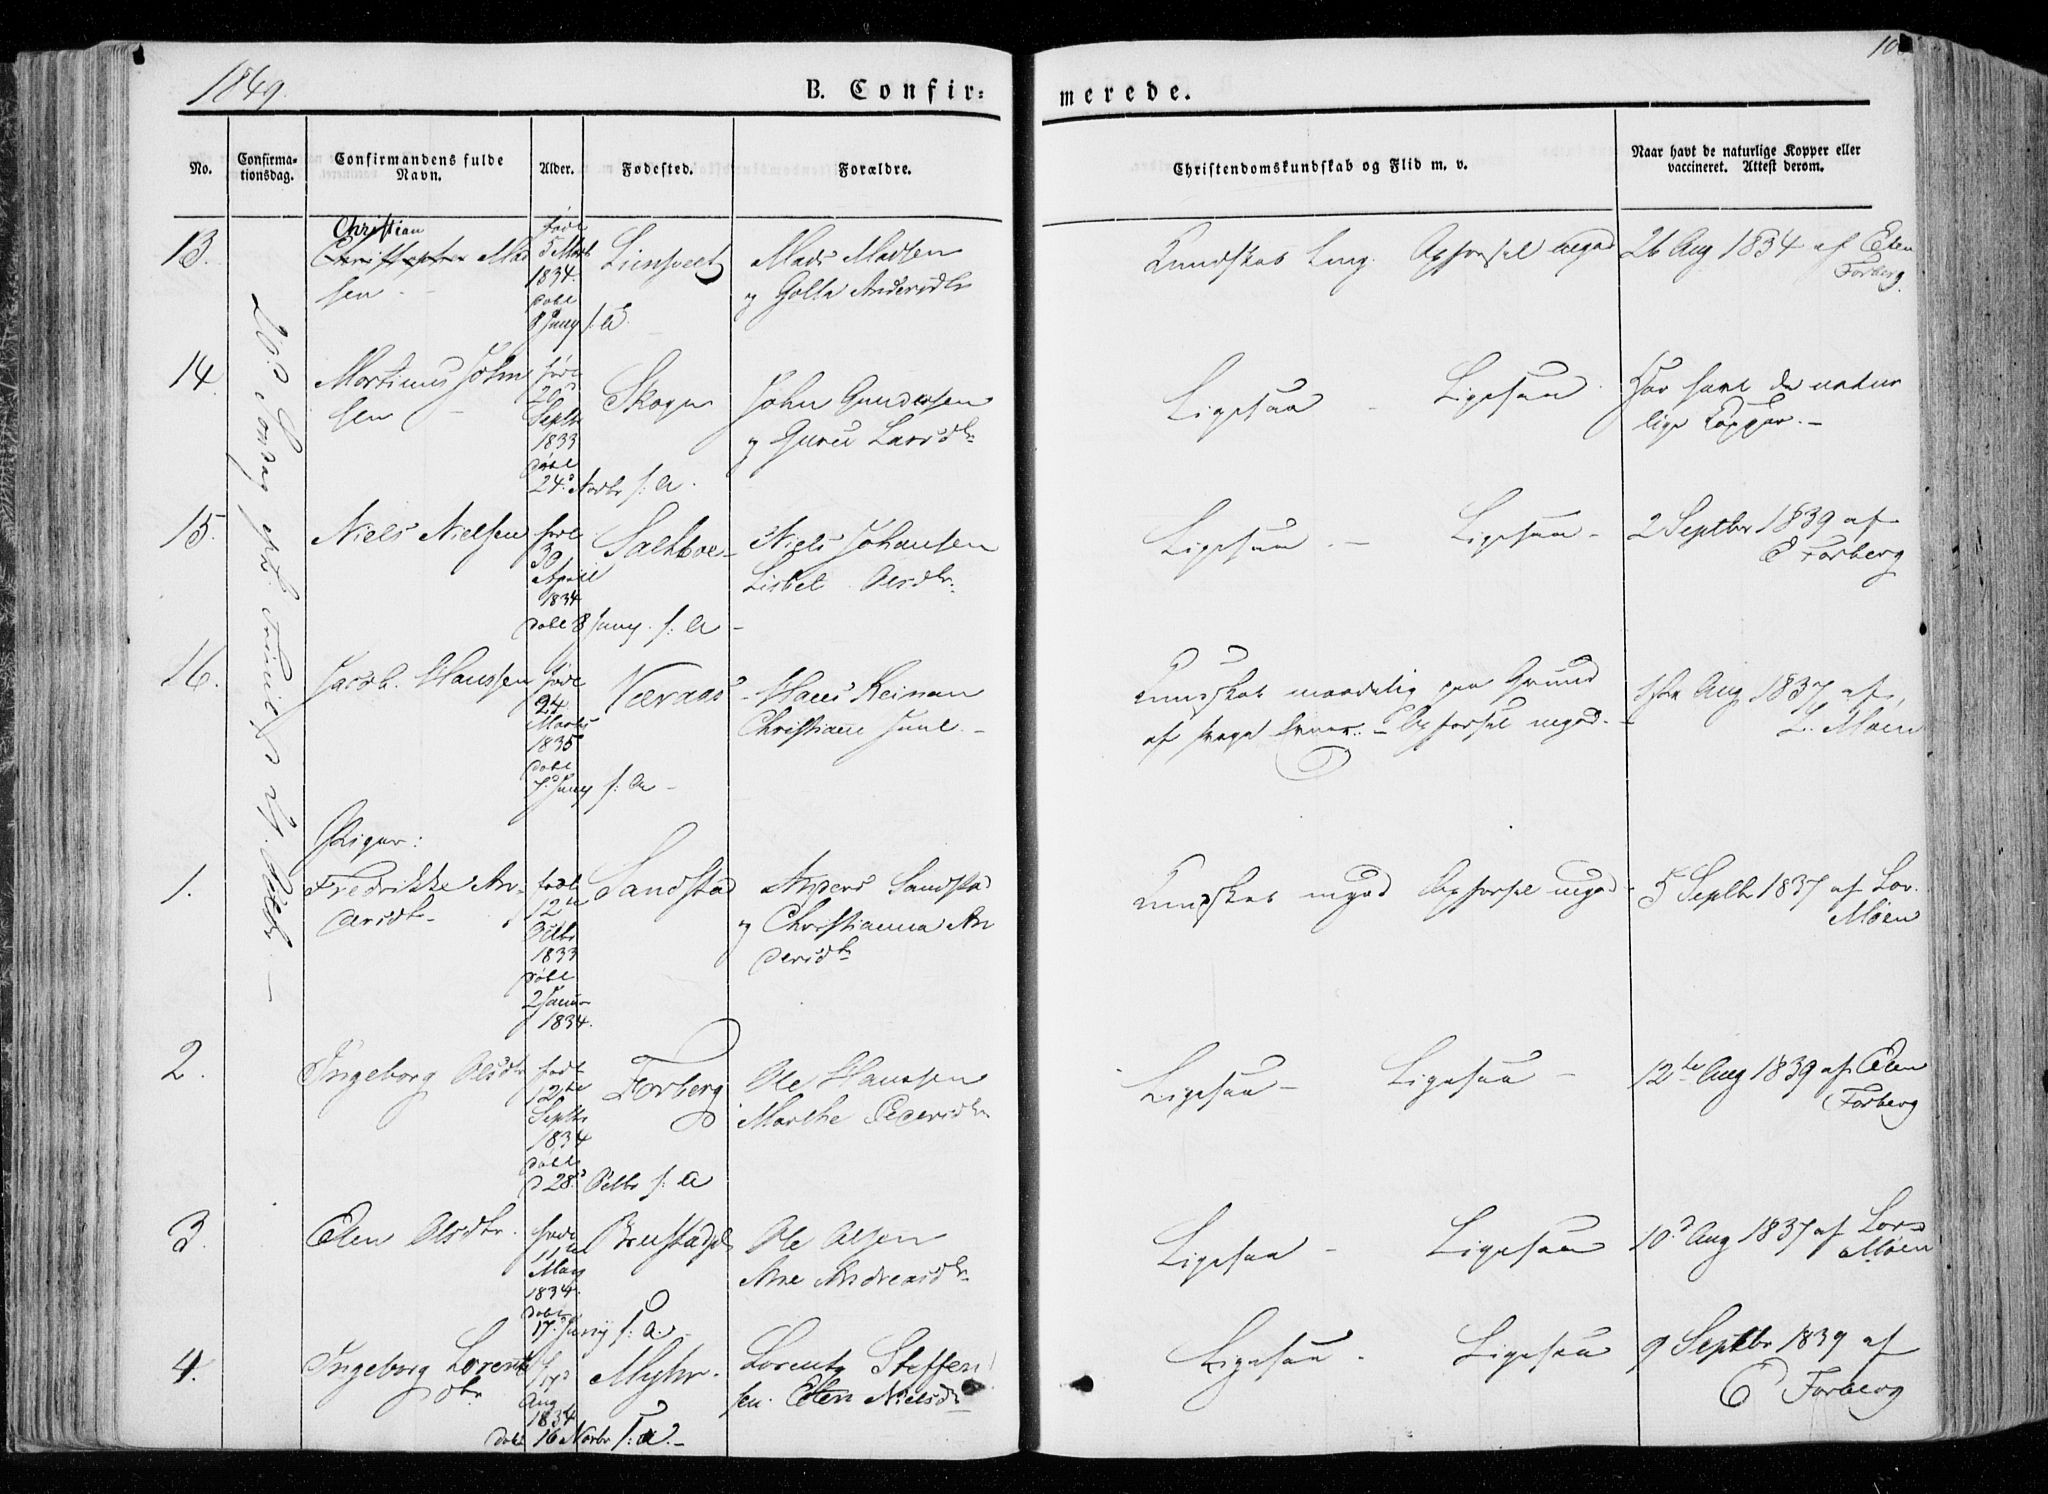 1849.
B. Confir-
merede.
No.
Confirma-
tionsdag.
Confirmandens fulde
Navn.
Alder.
Fødested.
Forældre.
Christendomskundskab og Flid m. v.
Naar havt de naturlige Kopper eller
vaccineret. Attest derom.
13.
Christian
Christopher Mad
sen
født
5 Mart
1834.
døbt
8 Juny s: A.
Mads Madsen
og Golla Andersdtr
Kundskab
Opførsel megod
26 Aug 1834 af Elen
Forberg.
14.
Martinus John
sen
født
20d
Septbr
1833
døbt
24d Novbr s: A.
Skogn
John Gundersen
og Guru Larsdtr
Ligesaa
Ligesaa
Har havt de natur
lige Kopper.
15.
Niels Nielsen
født
30
April
1834
døbt 8 Juny s: A
Saltboe
Niels Johansen
Lisbet Olsdtr:
Ligesaa
Ligesaa
2 Septbr 1839 af
E Forberg
16.
Jacob Hanssen
født
24
Marts
1835
døbt
7d Juny s: A
Væraas
Hans Reinan
Christiane Juul
Kundskab maadelig paa Grund
af svage Evner. Opførsel megod.
Aug 1837 af
L. Møen
Piger:
1.
Fredrikke An-
dersdtr
født
12te
Octbr
1833
døbt
2 Januar
1834.
Sandstad
Anders Sandstad
og Christianna An
dersdtr
Kundskab megod
Opførsel megod
5 Septbr 1837 af Lor.
Møen
2.
Ingeborg Olsdtr
født
12te
Septbr
1834
døbt
d 28d Octbr s: A
Forberg
Ole Hanssen
Marthe Pedersdtr
Ligesaa
Ligesaa
12te Aug 1839 af Elen
Forberg
3.
Elen Olsdtr.
født
11te
May
1834.
døbt
17d Juny s: A.
Ole Olsen
Ane Andreasdtr
Ligesaa
Ligesaa
10d Aug 1837 af Lor
Møen
4.
Ingeborg Lorents
dtr.
17d
Aug
1834
døbt 16 Novbr s: A.
Myhr.
Lorents Steffen
sen. Elen Nielsdtr
Ligesaa
Ligesaa
9 Septbr 1839 af
E Forberg